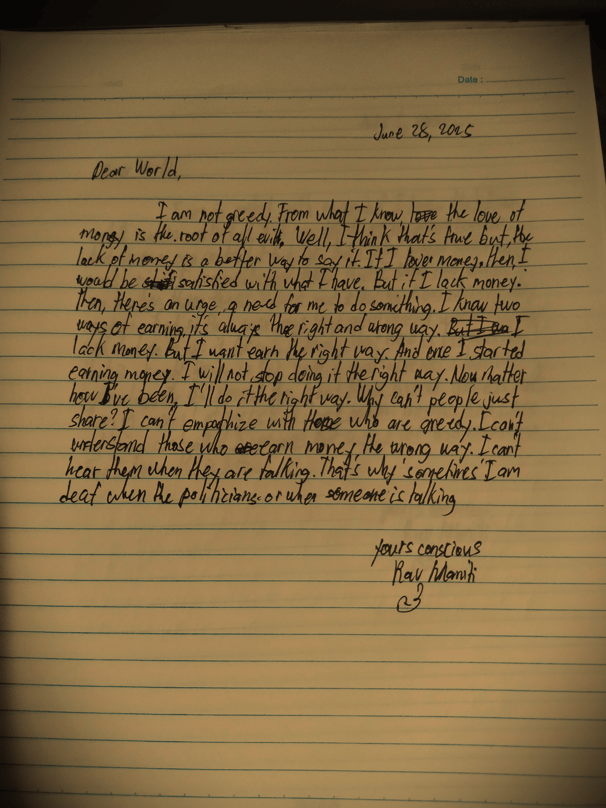 Date :
June 28, 2025
Dear World,
I am not greedy. From what I know, the love of
money is the root of all evils. Well, I think that's true but, the
lack of money is a better way to say it. If I love money, then, I
would be satisfied with what I have. But if I lack money.
Then, there's an urge, a need for me to do something. I know two
ways of earning, it's always the right and wrong way. I
lack money. But I want earn the right way. And once I started
earning money. I will not stop doing it the right way. Now matter
how I've been, I'll do it the right way. Why can't people just
share? I can't empathize with those who are greedy. I can't
understand those who earn money the wrong way. I can't
hear them when they are talking. That's why 'sometimes' I am
deaf when the politicians or when someone is talking
yours conscious